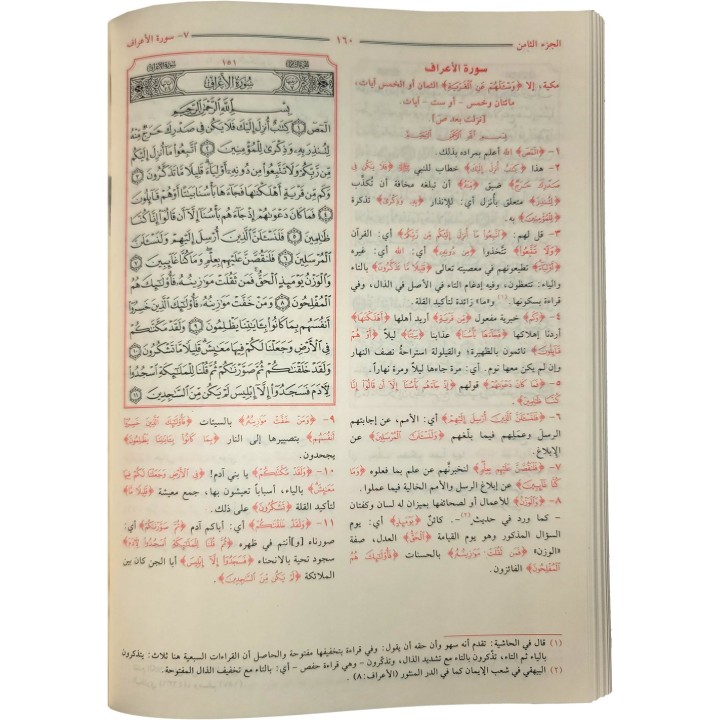 الجزء الثامن
١٦٠
٧- سورة الأعراف
سورة الأعراف
مكية، إلا ﴿وَسْئَلْهُمْ عَنِ الْقَرْيَةِ﴾ الثمان أو الخمس آيات،
مائتان وخمس - أو ست - آيات.
[نزلت بعد ص]
بِسْمِ اللَّهِ الرَّحْمَٰنِ الرَّحِيمِ
١- ﴿الٓمٓصٓ﴾ الله أعلم بمراده بذلك.
٢- هذا ﴿كِتَٰبٌ أُنزِلَ إِلَيْكَ﴾ خطاب للنبي ﷺ ﴿فَلَا يَكُن فِى
صَدْرِكَ حَرَجٌ﴾ ضيق ﴿مِّنْهُ﴾ أن تبلغه مخافة أن تُكذَّب
﴿لِتُنذِرَ﴾ متعلق بأنزل أي: للإنذار ﴿بِهِۦ وَذِكْرَىٰ﴾ تذكرة
﴿لِلْمُؤْمِنِينَ﴾ به.
٣- قل لهم: ﴿اتَّبِعُوا مَا أُنزِلَ إِلَيْكُم مِّن رَّبِّكُمْ﴾ أي: القرآن
﴿وَلَا تَتَّبِعُوا﴾ تتَّخذوا ﴿مِن دُونِهِۦ﴾ أي: الله أي: غيره
﴿أَوْلِيَاءَ﴾ تطيعونهم في معصيته تعالى ﴿قَلِيلًا مَّا تَذَكَّرُونَ﴾ بالتاء
والياء: تتعظون، وفيه إدغام التاء في الأصل في الذال، وفي
قراءة بسكونها.(١) و«ما» زائدة لتأكيد القلة.
٤- ﴿وَكَم﴾ خبرية مفعول ﴿مِّن قَرْيَةٍ﴾ أريد أهلها ﴿أَهْلَكْنَٰهَا﴾
أردنا إهلاكها ﴿فَجَاءَهَا بَأْسُنَا﴾ عذابنا ﴿بَيَٰتًا﴾ ليلاً ﴿أَوْ هُمْ
قَائِلُونَ﴾ نائمون بالظهيرة؛ والقيلولة استراحةُ نصف النهار
وإن لم يكن معها نوم. أي: مرة جاءها ليلاً ومرة نهاراً.
٥- ﴿فَمَا كَانَ دَعْوَىٰهُمْ﴾ قولهم ﴿إِذْ جَاءَهُم بَأْسُنَا إِلَّا أَن قَالُوا إِنَّا
كُنَّا ظَٰلِمِينَ﴾.
٦- ﴿فَلَنَسْـَٔلَنَّ الَّذِينَ أُرْسِلَ إِلَيْهِمْ﴾ أي: الأمم، عن إجابتهم
الرسلَ وعملِهم فيما بلَّغهم ﴿وَلَنَسْـَٔلَنَّ الْمُرْسَلِينَ﴾ عن
الإبلاغ.
٧- ﴿فَلَنَقُصَّنَّ عَلَيْهِم بِعِلْمٍ﴾ لنخبرنَّهم عن علم بما فعلوه ﴿وَمَا
كُنَّا غَائِبِينَ﴾ عن إبلاغ الرسل والأمم الخالية فيما عملوا.
٨- ﴿وَالْوَزْنُ﴾ للأعمال أو لصحائفها بميزان له لسان وكفتان
- كما ورد في حديث(٢)-. كائنٌ ﴿يَوْمَئِذٍ﴾ أي: يوم
السؤال المذكور وهو يوم القيامة ﴿الْحَقُّ﴾ العدل، صفة
«الوزن» ﴿فَمَن ثَقُلَتْ مَوَٰزِينُهُۥ﴾ بالحسنات ﴿فَأُولَٰئِكَ هُمُ
الْمُفْلِحُونَ﴾ الفائزون.
١٥١
سُورَةُ الأَعْرَافِ
بِسْمِ اللَّهِ الرَّحْمَٰنِ الرَّحِيمِ
الٓمٓصٓ ١ كِتَٰبٌ أُنزِلَ إِلَيْكَ فَلَا يَكُن فِى صَدْرِكَ حَرَجٌ مِّنْهُ
لِتُنذِرَ بِهِۦ وَذِكْرَىٰ لِلْمُؤْمِنِينَ ٢ اتَّبِعُوا مَا أُنزِلَ إِلَيْكُم
مِّن رَّبِّكُمْ وَلَا تَتَّبِعُوا مِن دُونِهِۦ أَوْلِيَاءَ قَلِيلًا مَّا تَذَكَّرُونَ ٣
وَكَم مِّن قَرْيَةٍ أَهْلَكْنَٰهَا فَجَاءَهَا بَأْسُنَا بَيَٰتًا أَوْ هُمْ قَائِلُونَ
٤ فَمَا كَانَ دَعْوَىٰهُمْ إِذْ جَاءَهُم بَأْسُنَا إِلَّا أَن قَالُوا إِنَّا كُنَّا
ظَٰلِمِينَ ٥ فَلَنَسْـَٔلَنَّ الَّذِينَ أُرْسِلَ إِلَيْهِمْ وَلَنَسْـَٔلَنَّ
الْمُرْسَلِينَ ٦ فَلَنَقُصَّنَّ عَلَيْهِم بِعِلْمٍ وَمَا كُنَّا غَائِبِينَ ٧
وَالْوَزْنُ يَوْمَئِذٍ الْحَقُّ فَمَن ثَقُلَتْ مَوَٰزِينُهُۥ فَأُولَٰئِكَ هُمُ
الْمُفْلِحُونَ ٨ وَمَنْ خَفَّتْ مَوَٰزِينُهُۥ فَأُولَٰئِكَ الَّذِينَ خَسِرُوا
أَنفُسَهُم بِمَا كَانُوا بِـَٔايَٰتِنَا يَظْلِمُونَ ٩ وَلَقَدْ مَكَّنَّٰكُمْ
فِى الْأَرْضِ وَجَعَلْنَا لَكُمْ فِيهَا مَعَٰيِشَ قَلِيلًا مَّا تَشْكُرُونَ ١٠
وَلَقَدْ خَلَقْنَٰكُمْ ثُمَّ صَوَّرْنَٰكُمْ ثُمَّ قُلْنَا لِلْمَلَٰئِكَةِ اسْجُدُوا
لِـَٔادَمَ فَسَجَدُوا إِلَّا إِبْلِيسَ لَمْ يَكُن مِّنَ السَّٰجِدِينَ ١١
٩- ﴿وَمَنْ خَفَّتْ مَوَٰزِينُهُۥ﴾ بالسيئات ﴿فَأُولَٰئِكَ الَّذِينَ خَسِرُوا
أَنفُسَهُم﴾ بتصييرها إلى النار ﴿بِمَا كَانُوا بِـَٔايَٰتِنَا يَظْلِمُونَ﴾
يجحدون.
١٠- ﴿وَلَقَدْ مَكَّنَّٰكُمْ﴾ يا بني آدم! ﴿فِى الْأَرْضِ وَجَعَلْنَا لَكُمْ فِيهَا
مَعَٰيِشَ﴾ بالياء، أسباباً تعيشون بها، جمع معيشة ﴿قَلِيلًا مَّا﴾
لتأكيد القلة ﴿تَشْكُرُونَ﴾ على ذلك.
١١- ﴿وَلَقَدْ خَلَقْنَٰكُمْ﴾ أي: أباكم آدم ﴿ثُمَّ صَوَّرْنَٰكُمْ﴾ أي:
صورناه [و]أنتم في ظهره ﴿ثُمَّ قُلْنَا لِلْمَلَٰئِكَةِ اسْجُدُوا لِـَٔادَمَ﴾
سجود تحية بالانحناء ﴿فَسَجَدُوا إِلَّا إِبْلِيسَ﴾ أبا الجن كان بين
الملائكة ﴿لَمْ يَكُن مِّنَ السَّٰجِدِينَ﴾.
(١) قال في الحاشية: تقدم أنه سهو وأن حقه أن يقول: وفي قراءة بتخفيفها مفتوحة والحاصل أن القراءات السبعية هنا ثلاث: يتذكرون
بالياء ثم التاء، تذّكرون بالتاء مع تشديد الذال، وتذكرون - وهي قراءة حفص - أي: بالتاء مع تخفيف الذال المفتوحة.
(٢) البيهقي في شعب الإيمان كما في الدر المنثور (الأعراف: ٨).